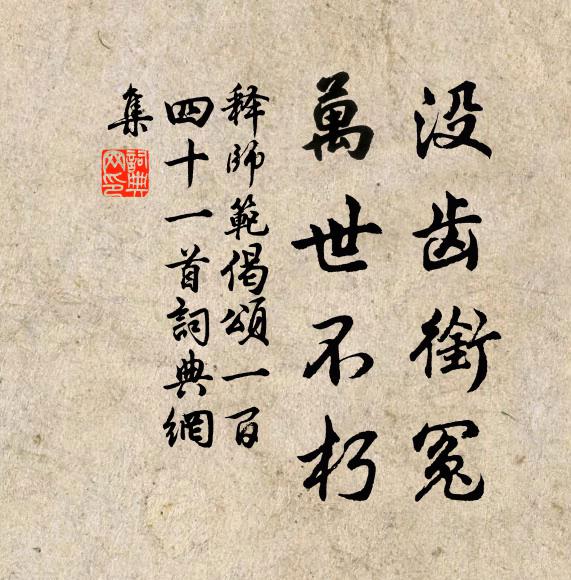 没齿衔冤
萬世不朽
释师範偈頌一百
四十一首詞典網
集
詞典网印